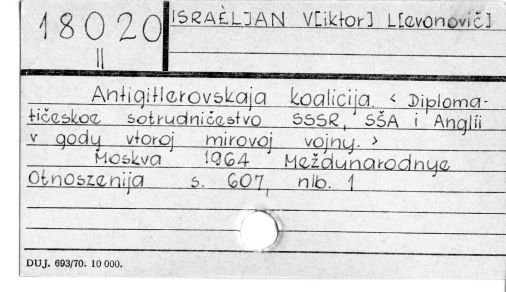 18020 ISRAÈLJAN V[iktor] L[evonovič]
II
Antigitlerovskaja koalicija. < Diploma-
tičeskoe sotrudničestvo SSSR, SŠA i Anglii
v gody vtoroj mirovoj vojny. >
Moskva 1964 Meždunarodnye
Otnoszenija s. 607, nlb. 1
DUJ. 693/70. 10 000.